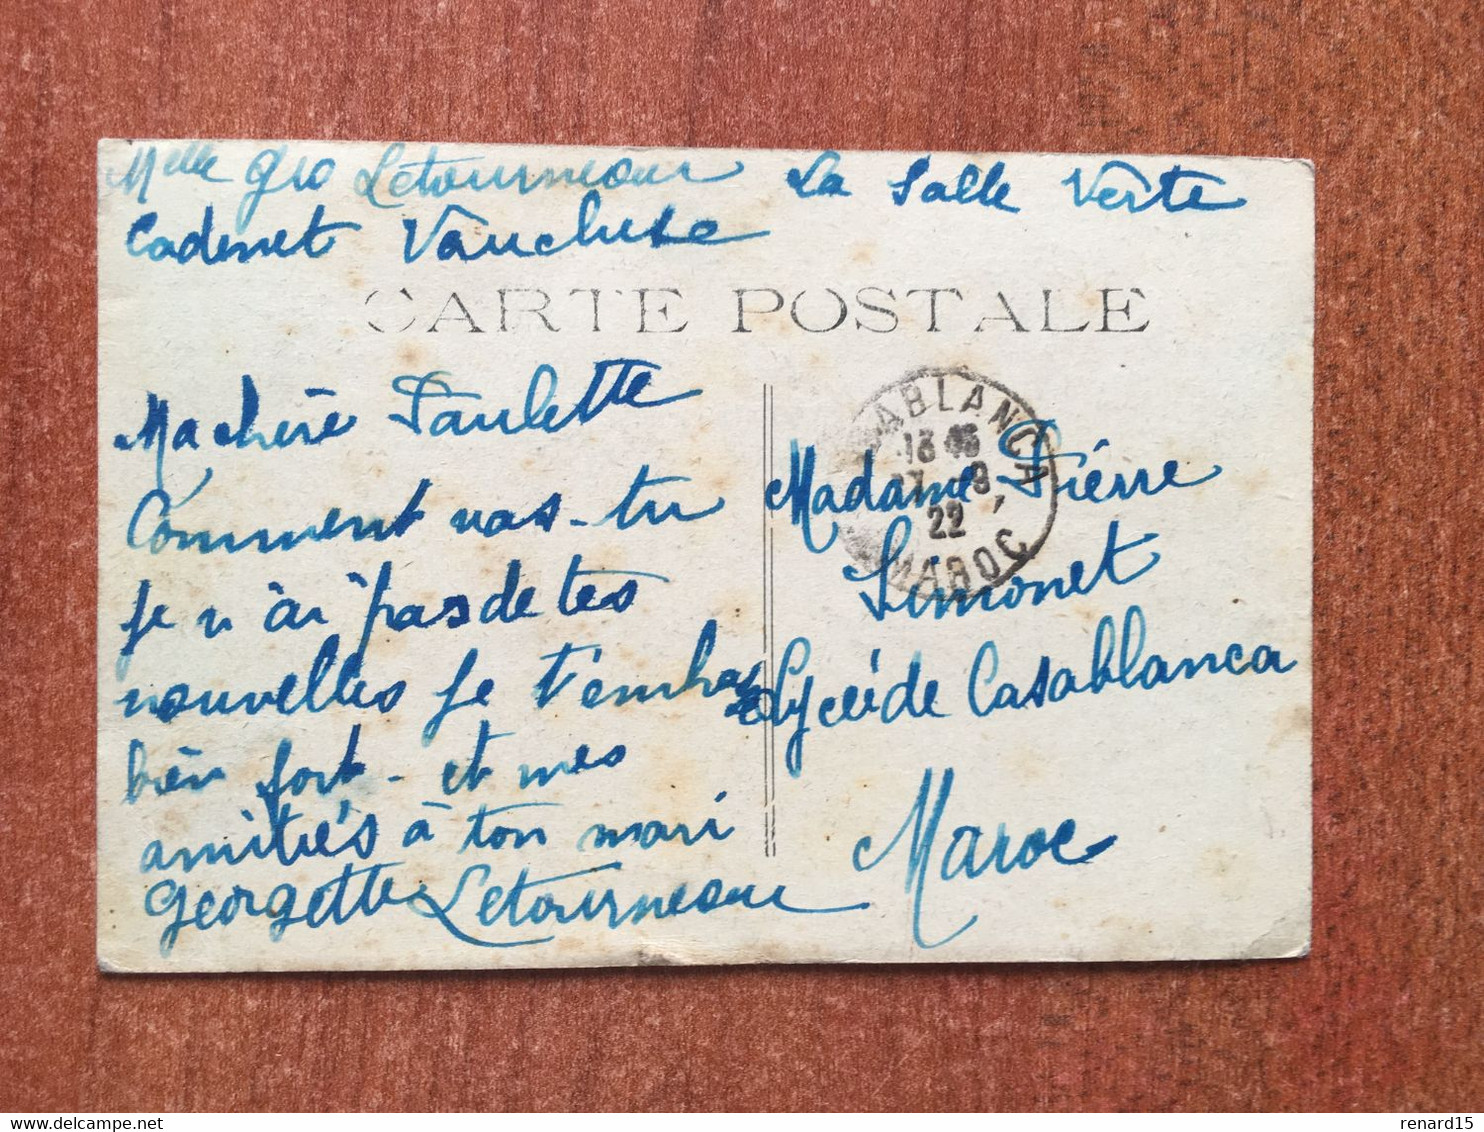 Melle Geo Letourneau La Salle Verte
Cadenet Vaucluse
CARTE POSTALE
Ma chère Paulette
Comment vas-tu
je n'ai pas de tes
nouvelles je t'embrasse
bien fort - et mes
amitiés à ton mari
Georgette Letourneau
CASABLANCA
22
MAROC
Madame Pierre
Simonet
Lycée de Casablanca
Maroc
renard15